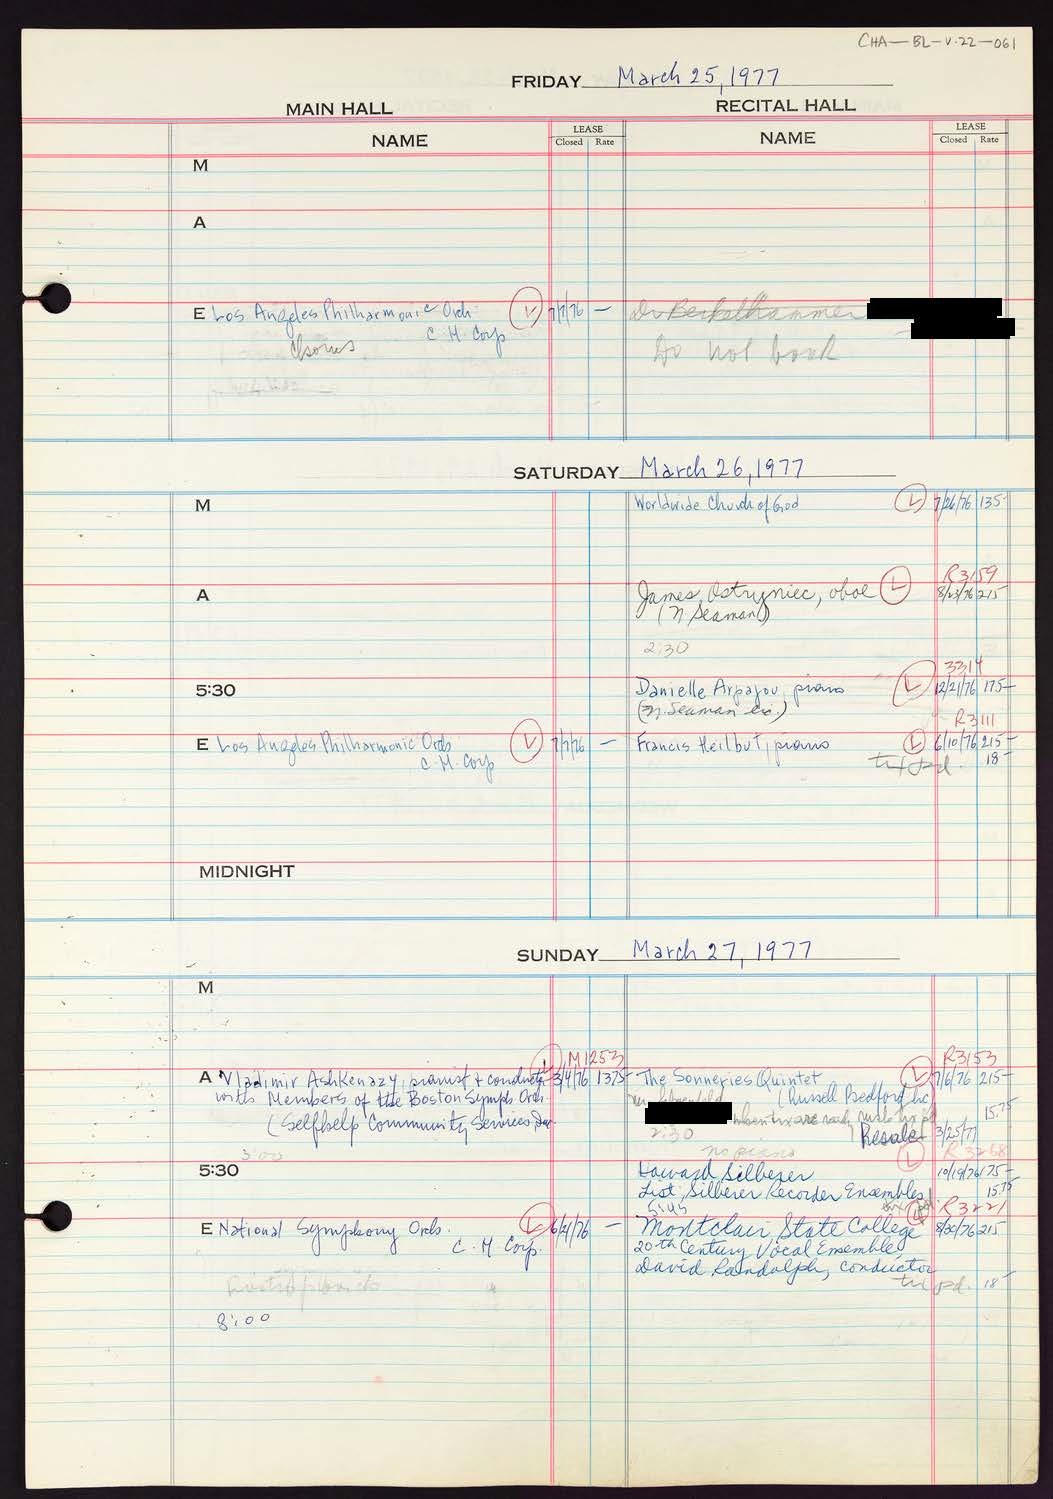 CHA-BL-V.22-061
FRIDAY March 25, 1977
MAIN HALL
RECITAL HALL
NAME
LEASE
Closed Rate
NAME
LEASE
Closed Rate
M
A
E Los Angeles Philharmonic Orch. L 7/7/76 —
C. H. Corp
Chorus
Do not book
SATURDAY March 26, 1977
M
Worldwide Church of God L 7/26/76 135-
A
R3159
James Ostryniec, oboe L 8/23/76 215
(N Seaman)
2:30
5:30
3314
Danielle Arpajou, piano L 12/21/76 175-
(N. Seaman)
R3111
E Los Angeles Philharmonic Orch. L 7/7/76 —
C. H. Corp
Francis Heilbut, piano L 6/10/76 215-
pd. 18-
MIDNIGHT
SUNDAY March 27, 1977
M
M1253
A Vladimir Ashkenazy, pianist + conductor 3/4/76 1375
with Members of the Boston Symph Orch.
(Selfhelp Community Services, Inc.
3:00
R3153
The Sonneries Quintet L 7/6/76 215-
(Russell Bedford, Inc)
15.75
2:30
Resale 3/25/77
no piano
5:30
R3268
Howard Silberer 10/19/76 175-
List: Silberer Recorder Ensembles 15.75
5:45
E National Symphony Orch. L 6/21/76 —
C. H Corp.
R3221
Montclair State College 8/30/76 215
20th Century Vocal Ensemble
David Randolph, conductor
pd. 18-
8:00